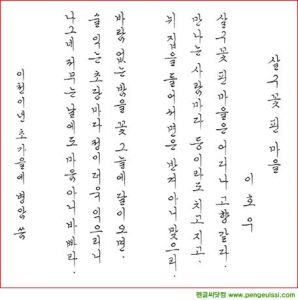 살구꽃 핀 마을
이호우
살구꽃 핀 마을은 어디나 고향 같다.
만나는 사람마다 등이라도 치고지고.
뉘 집을 들어서면은 반겨 아니 맞으리.
바람 없는 밤을 꽃 그늘에 달이 오면.
술 익는 초당마다 정이 더욱 익으리니
나그네 저무는 날에도 마음 아니 바빠라.
이천이년 초가을에 병암 씀
펜글씨닷컴 www.pengeulssi.com